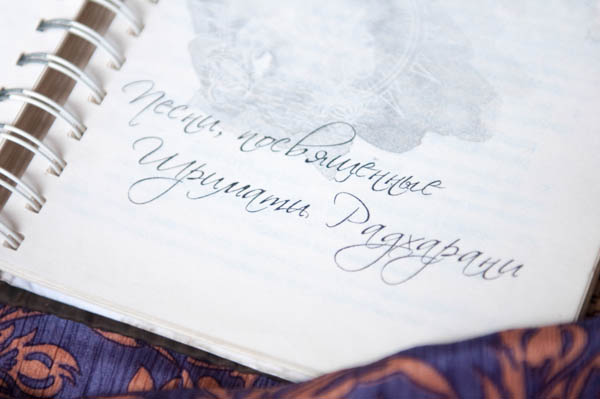 Песни, посвященные
Шримати Радхарани